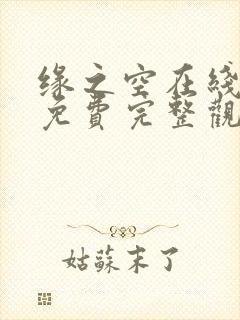 缘之空在綫
免費完整觀
姑蘇末了